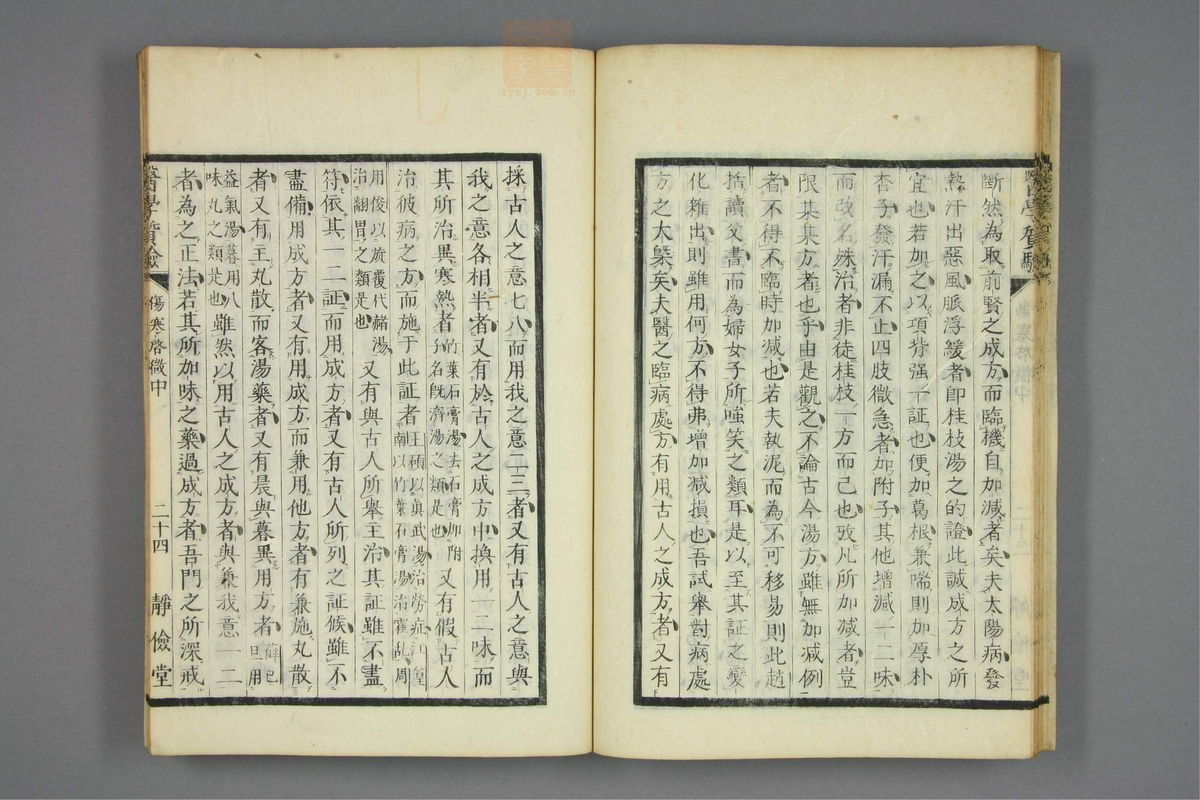 斷然為取前賢之成方而臨機自加減者矣夫太陽病發
熱汗出惡風脈浮緩者即桂枝湯之的證此誠成方之所
宜也若加之以項背强一証也便加葛根兼喘則加厚朴
杏子發汗漏不止四肢微急者加附子其他增減一二味
而改名殊治者非徒桂枝一方而已也攷凡所加减者豈
限某某方者也乎由是觀之不論古今湯方雖無加减例
者不得不臨時加減也若夫執泥而為不可移易則此趙
括讀父書而為婦女子所嗤笑之類耳是以至其証之變
化雜出則雖用何方不得弗增加减損也吾試舉對病處
方之大槩矣夫醫之臨病處方有用古人之成方者又有
醫學質驗
採古人之意七八而用我之意二三者又有古人之意與
我之意各相半者又有於古人之成方中換用一二味而
其所治異寒熱者竹葉石膏湯去石膏加附
子名既濟湯之類是也又有假古人
治彼病之方而施于此証者王碩以眞武湯治勞症江篁
南以竹葉石膏湯治霍乱周
用俊以旋覆代赭湯
治翻胃之類是也又有與古人所舉主治其証雖不盡
符依其一二証而用成方者又有古人所列之証候雖不
盡備用成方者又有用成方而兼用他方者有兼施丸散
者又有主丸散而客湯藥者又有晨與暮異用方者薛己
旦用
益氣湯暮用八
味丸之類是也雖然以用古人之成方者與兼我意一二
者為之正法若其所加味之藥過成方者吾門之所深戒
醫學質驗
傷寒啓微中
二十四
靜儉堂
zysj.com.cn